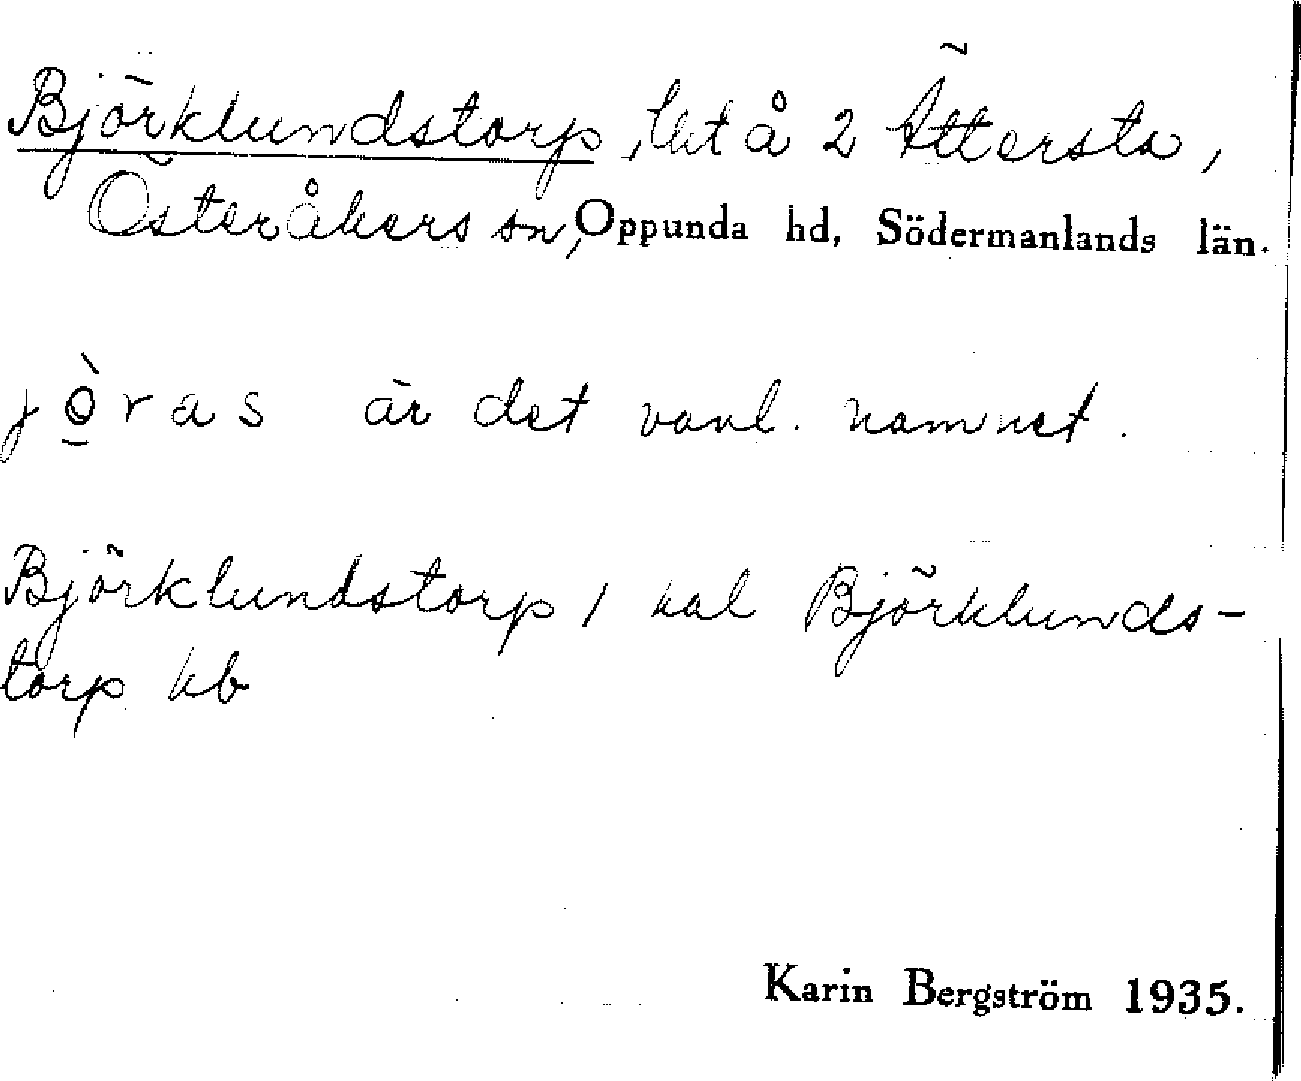 Björklundstorp, lht å 2 Ättersta,
Österåkers sn, Oppunda hd, Södermanlands län.
jò̱ras är det vanl. namnet.
Björklundstorp / kal Björklunds-
torp kb
Karin Bergström 1935.